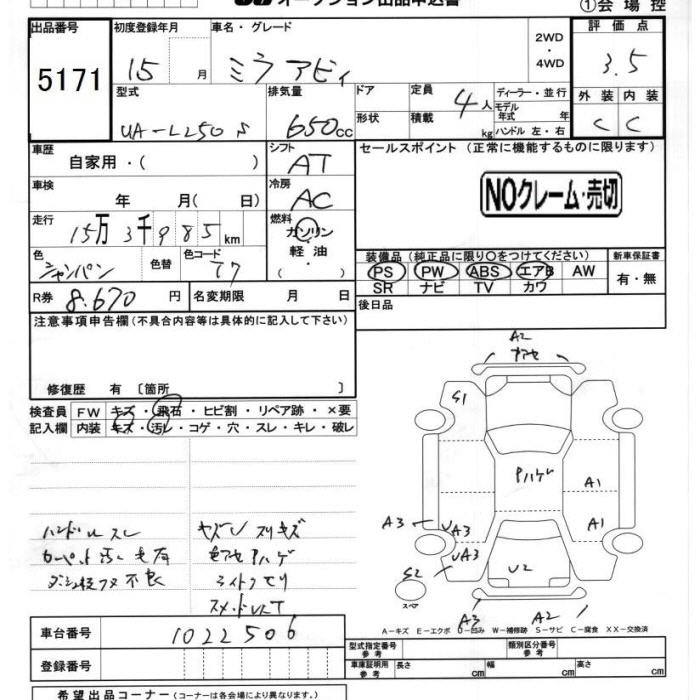 オークション出品申込書
①会場控
出品番号
5171
初度登録年月
15
月
車名・グレード
ミラ アビィ
2WD
・
4WD
評価点
3.5
型式
UA-L250S
排気量
650cc
ドア
形状
定員
4人
積載
kg
ディーラー・並行
モデル
年式
年
ハンドル 左・右
外装
内装
C
C
車歴
自家用・(
)
シフト
AT
セールスポイント (正常に機能するものに限ります)
車検
年
月(
日)
冷房
AC
NOクレーム・売切
走行
15万3千985km
燃料
ガソリン
軽油
(・)
色
シャンパン
色替
色コード
T7
装備品(純正品に限り○をつけてください)
新車保証書
PS
PW
ABS
エアB
AW
SR
ナビ
TV
カワ
有・無
R券
8.670
円
名変期限
月
日
後日品
注意事項申告欄(不具合内容等は具体的に記入して下さい)
修復歴 有〔箇所
〕
検査員
記入欄
FW
キズ・飛石・ヒビ割・リペア跡・×要
内装
キズ・汚レ・コゲ・穴・スレ・キレ・破レ
A2
S1
Pハゲ
A1
A3
UA3
A1
UA3
S2
スペア
U2
A3
A2
ハンドルスレ
カーペット汚レ毛有
A-キズ E-エクボ U-凹み W-補修跡 S-サビ C-腐食 XX-交換済
車台番号
1022506
登録番号
型式指定番号
参考
類別区分番号
参考
車庫証明用
参考
長さ
cm
幅
cm
高さ
cm
希望出品コーナー(コーナーは各会場により異なります。)